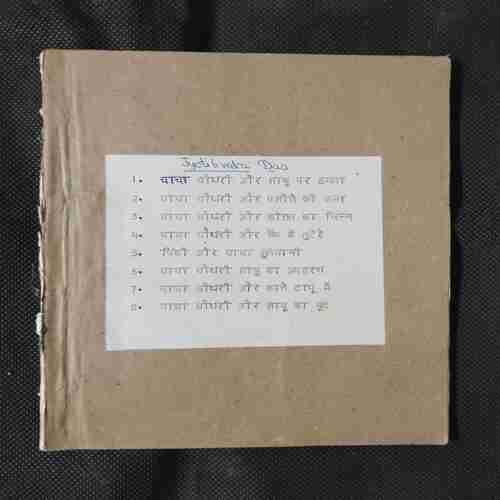 Jyotibrata Das
1. चाचा चौधरी और साबू पर हमला
2. चाचा चौधरी और
3. चाचा चौधरी और का जिन्न
4. चाचा चौधरी और बैंक के लुटेरे
5. पिंकी और चाचा
6. चाचा चौधरी साबू का अपहरण
7. चाचा चौधरी और काले टापू में
8. चाचा चौधरी और साबू का बूट